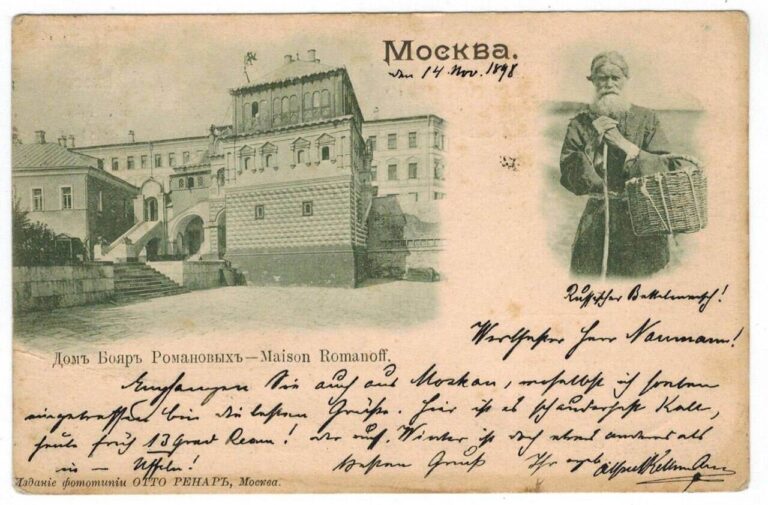 Москва.
den 14 Nov. 1898
Russischer Bettelmensch!
Werthester Herr Naumann!
Домъ Бояръ Романовыхъ — Maison Romanoff.
Empfangen Sie auch aus Moskau, woselbst ich soeben
eingetroffen bin die besten Grüße. Hier ist es schauderhaft Kalt,
heute früh 13 Grad Reaum! der Winter ist doch etwas anders als
in —
besten Gruß Ihr
Изданіе фототипіи ОТТО РЕНАРЪ, Москва.